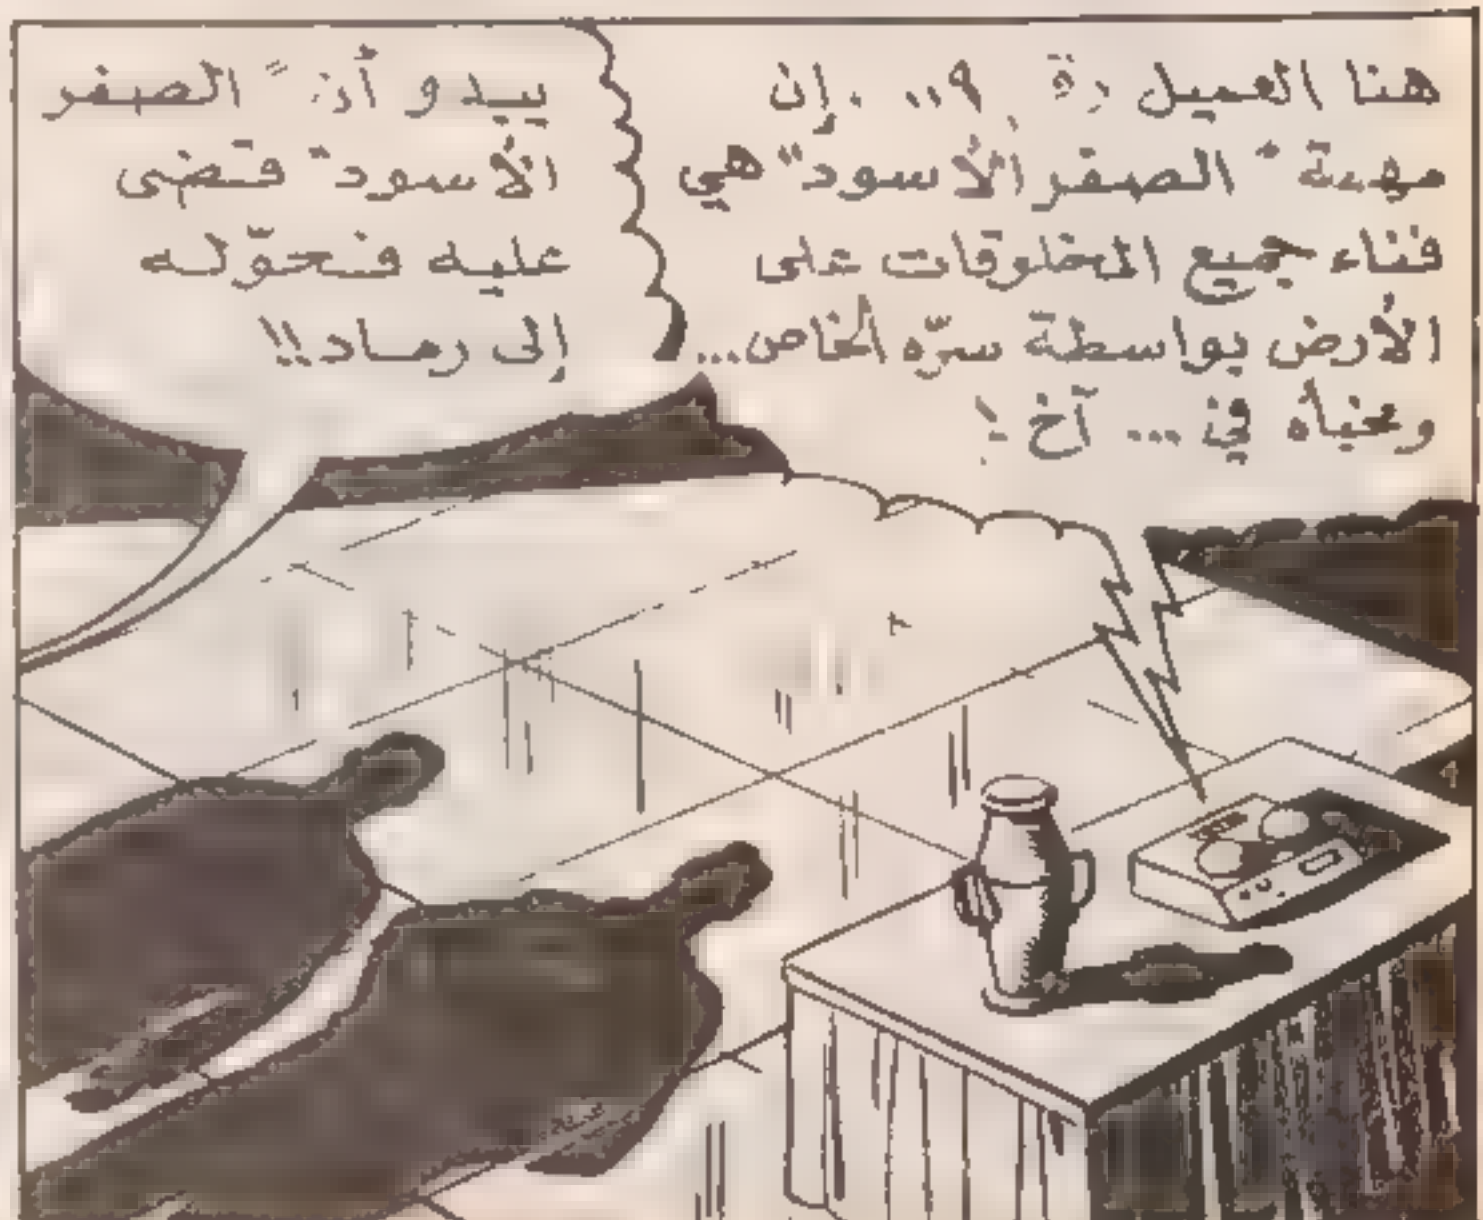 هنا العميل ٩.. .إن
مهمة "الصقر الأسود" هي
فناء جميع المخلوقات على
الأرض بواسطة سرّه الخاص...
ومخبأه في ... آخ !
يبدو أن "الصقر
الأسود" قضى
عليه فحوّله
إلى رماد!!